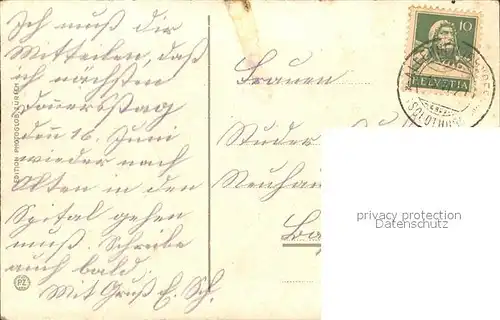 Ich muß dir
Mitteilen, daß
ich nächsten
Donnerstag
den 16. Juni
wieder nach
Olten in den
Spital gehen
muß. Schreibe
auch bald.
Mit Gruß E. Sch.
EDITION PHOTOGLOB ZÜRICH
PZ
Frauen
Studer
10
HELVETIA
(SOLOTHURN)
privacy protection
Datenschutz